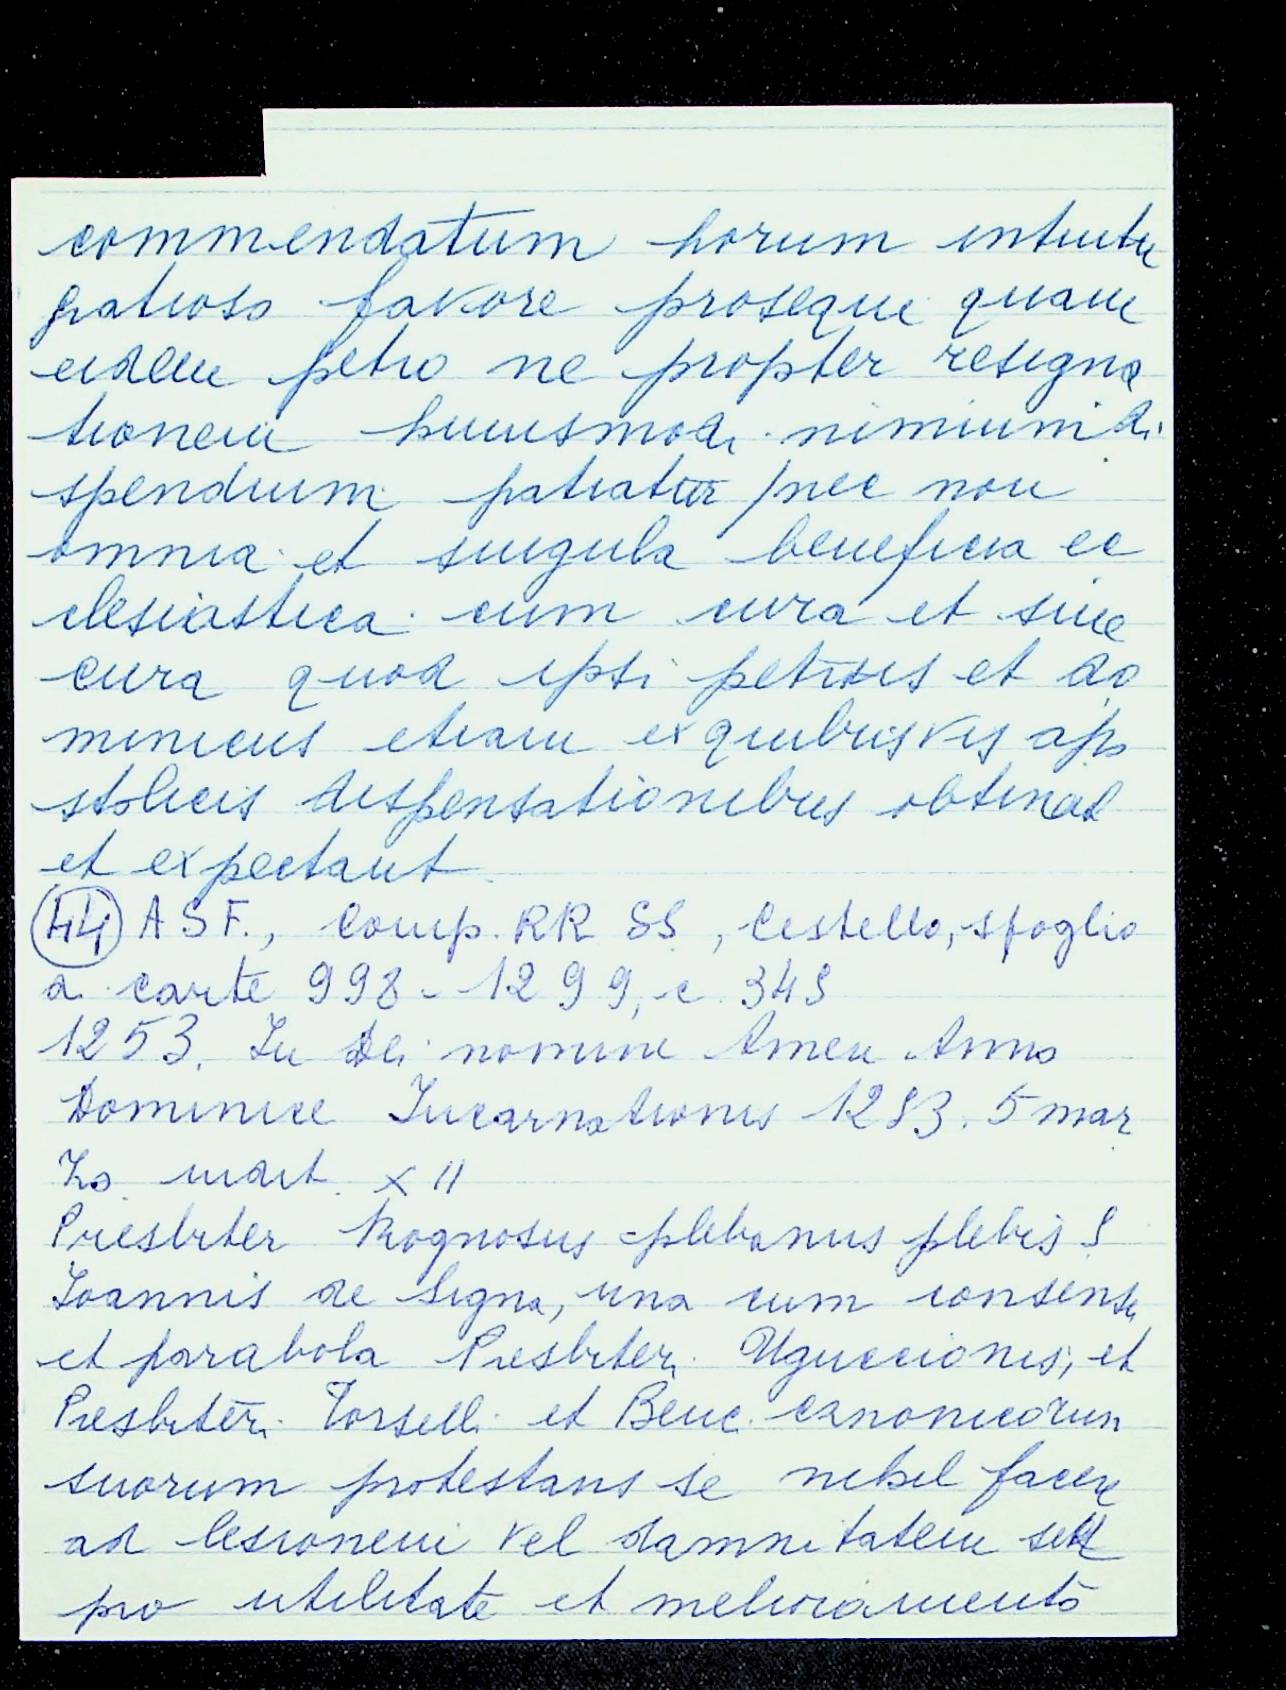 commendatum horum intuitu
gratioso favore prosequi quam
eidem petro ne propter resigna
tionem huiusmodi nimium di
spendium patiatur / nec non
omnia et singula beneficia ec
clesiastica cum cura et sine
cura quod ipsi petrus et do
minicus etiam ex quibusvis apo
stolicis dispensationibus obtinet
et expectant
44 A S F., Comp. RR SS, Cestello, spoglio
di carte 998-1299, c 349
1253. In Dei nomine Amen Anno
Dominice Incarnationis 1253. 5 mar
zo indit. XII
Presbiter Rognosus plebanus plebis S
Ioannis de Signa, una cum consensu
et parabola Presbiteri Uguccionis, et
Presbiteri Torselli et Benc. canonicorum
suorum protestans se nihil facere
ad lesionem vel damnitatem sed
pro utilitate et melioramento